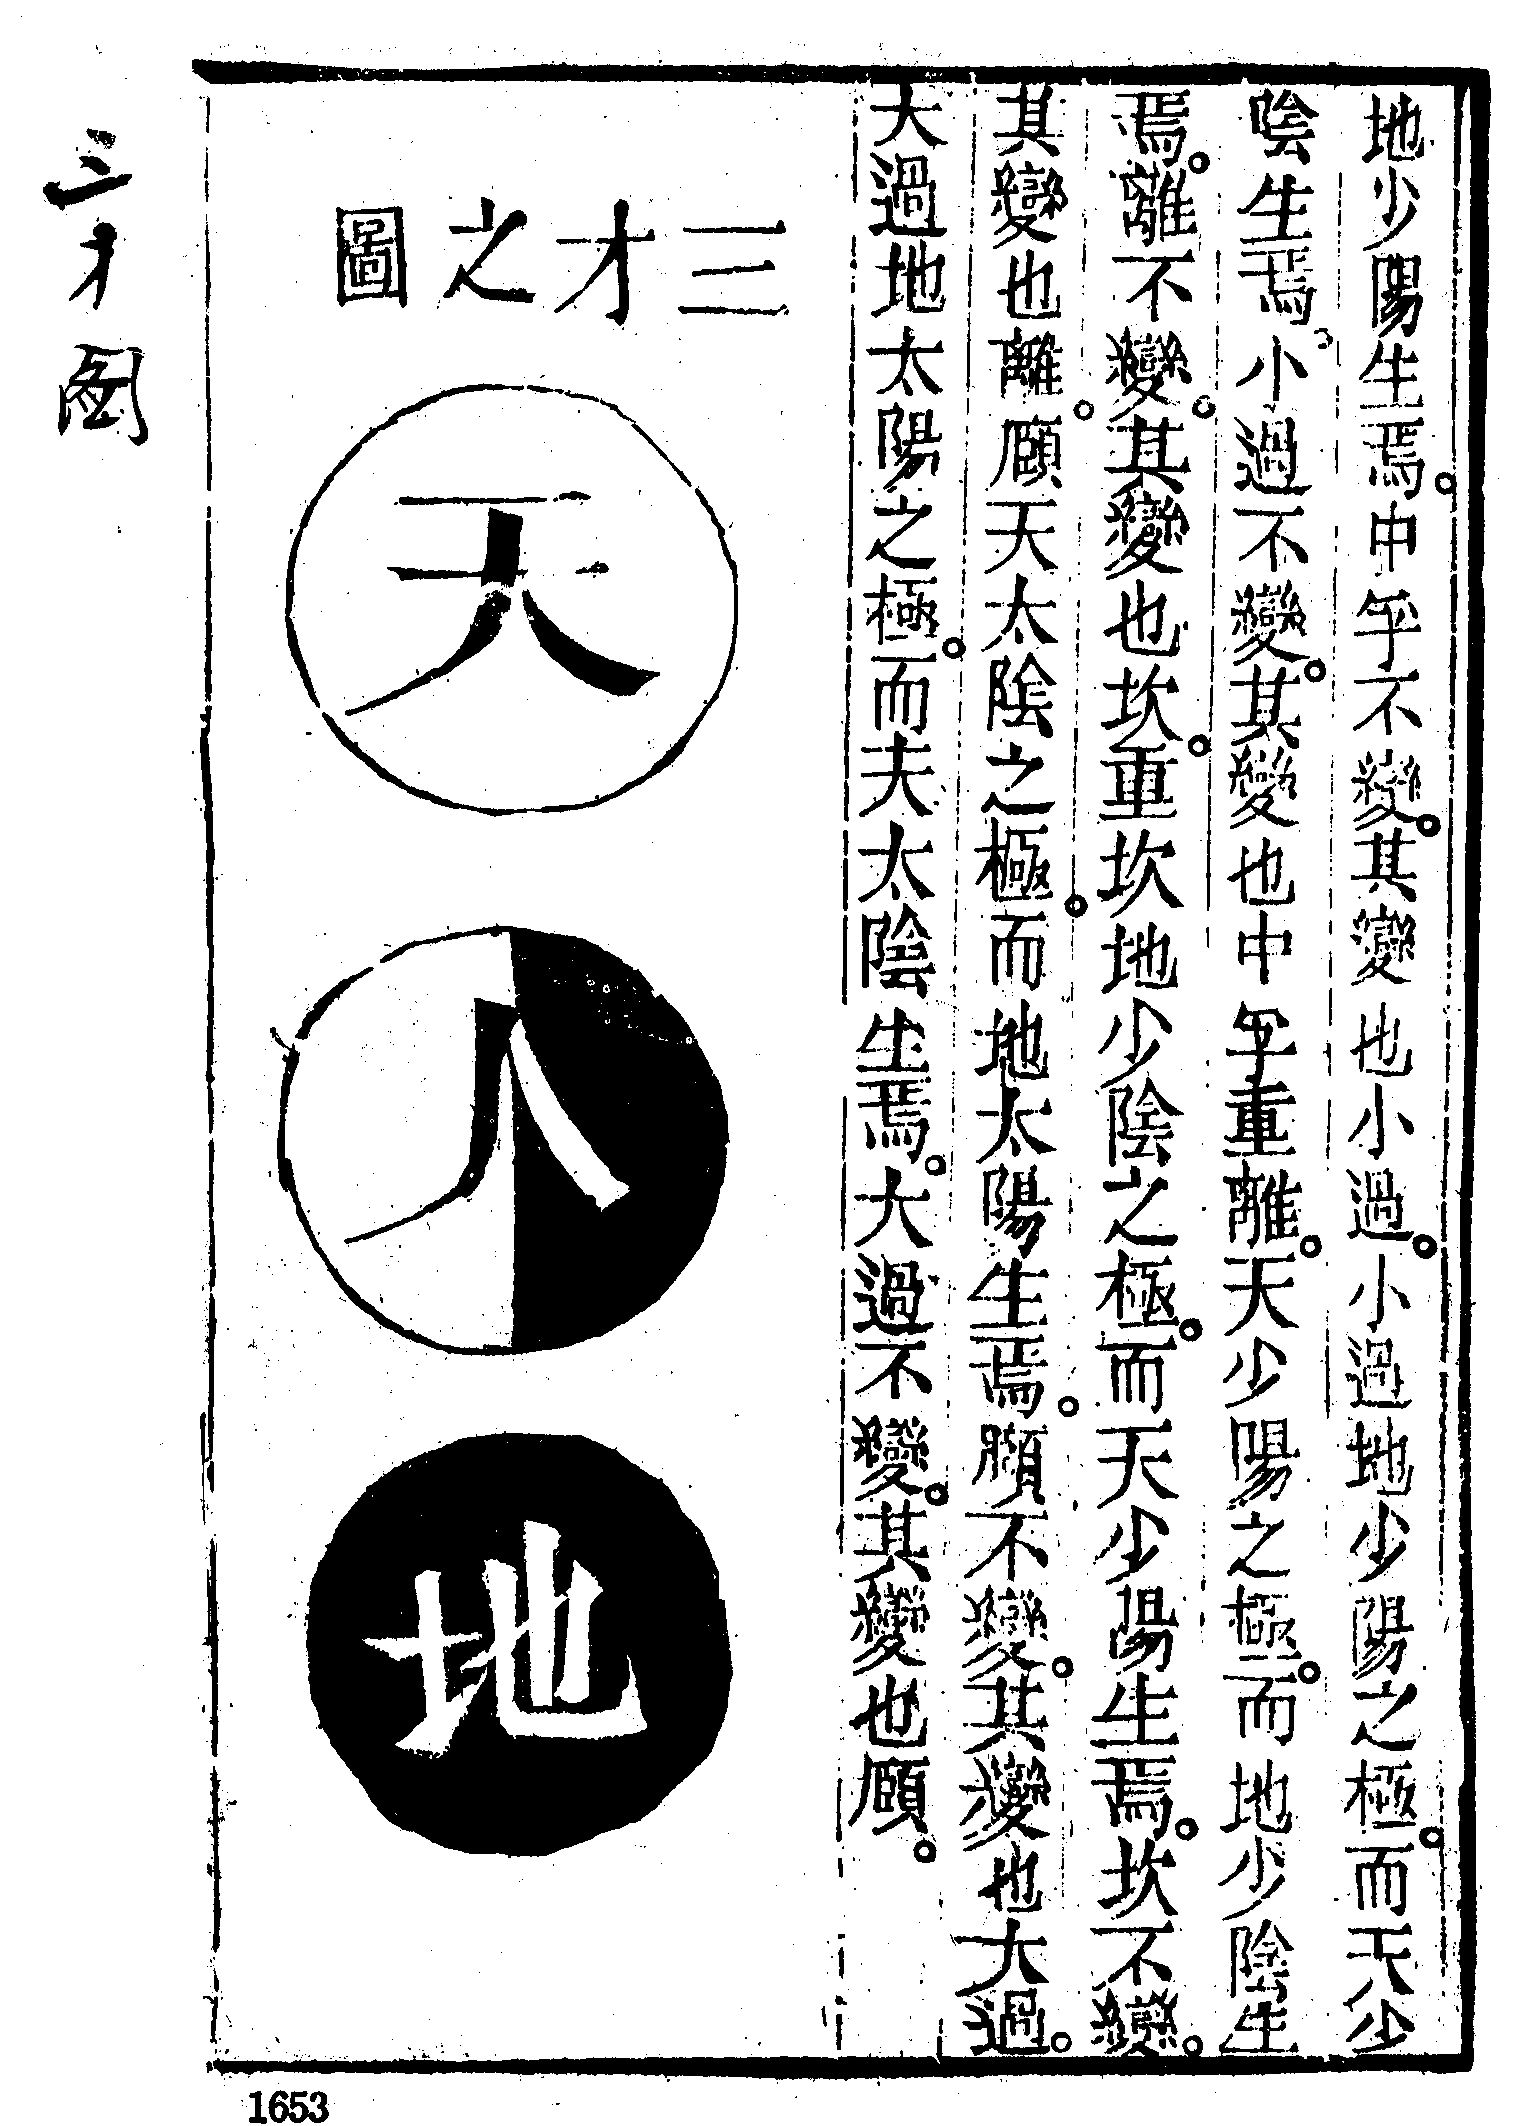 地少陽生焉。中孚不變。其變也小過。小過地少陽之極。而天少
陰生焉。小過不變。其變也中孚重離。天少陽之極。而地少陰生
焉。離不變。其變也坎。重坎地少陰之極。而天少陽生焉。坎不變。
其變也離。頤天太陰之極。而地太陽生焉。頤不變。其變也大過。
大過地太陽之極。而天太陰生焉。大過不變。其變也頤。
三才之圖
天
人
地
三才图
1653